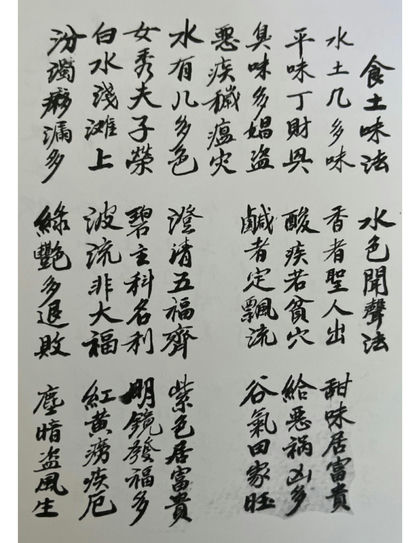 食土味法 水色聞聲法
水土几多味 香者聖人出 甜味居富貴
平味丁財興 酸疾若貧穴 給惡禍凶多
臭味多娼盜 鹹者定飄流 谷氣田家旺
惡疾穢瘟灾
水有几多色 澄清五福齊 紫色居富貴
女秀夫子榮 碧主科名利 明鏡發福多
白水淺灘上 波流非大福 紅黃癆疾厄
汾濁漏多 綠艷多退敗 塵暗盜風生